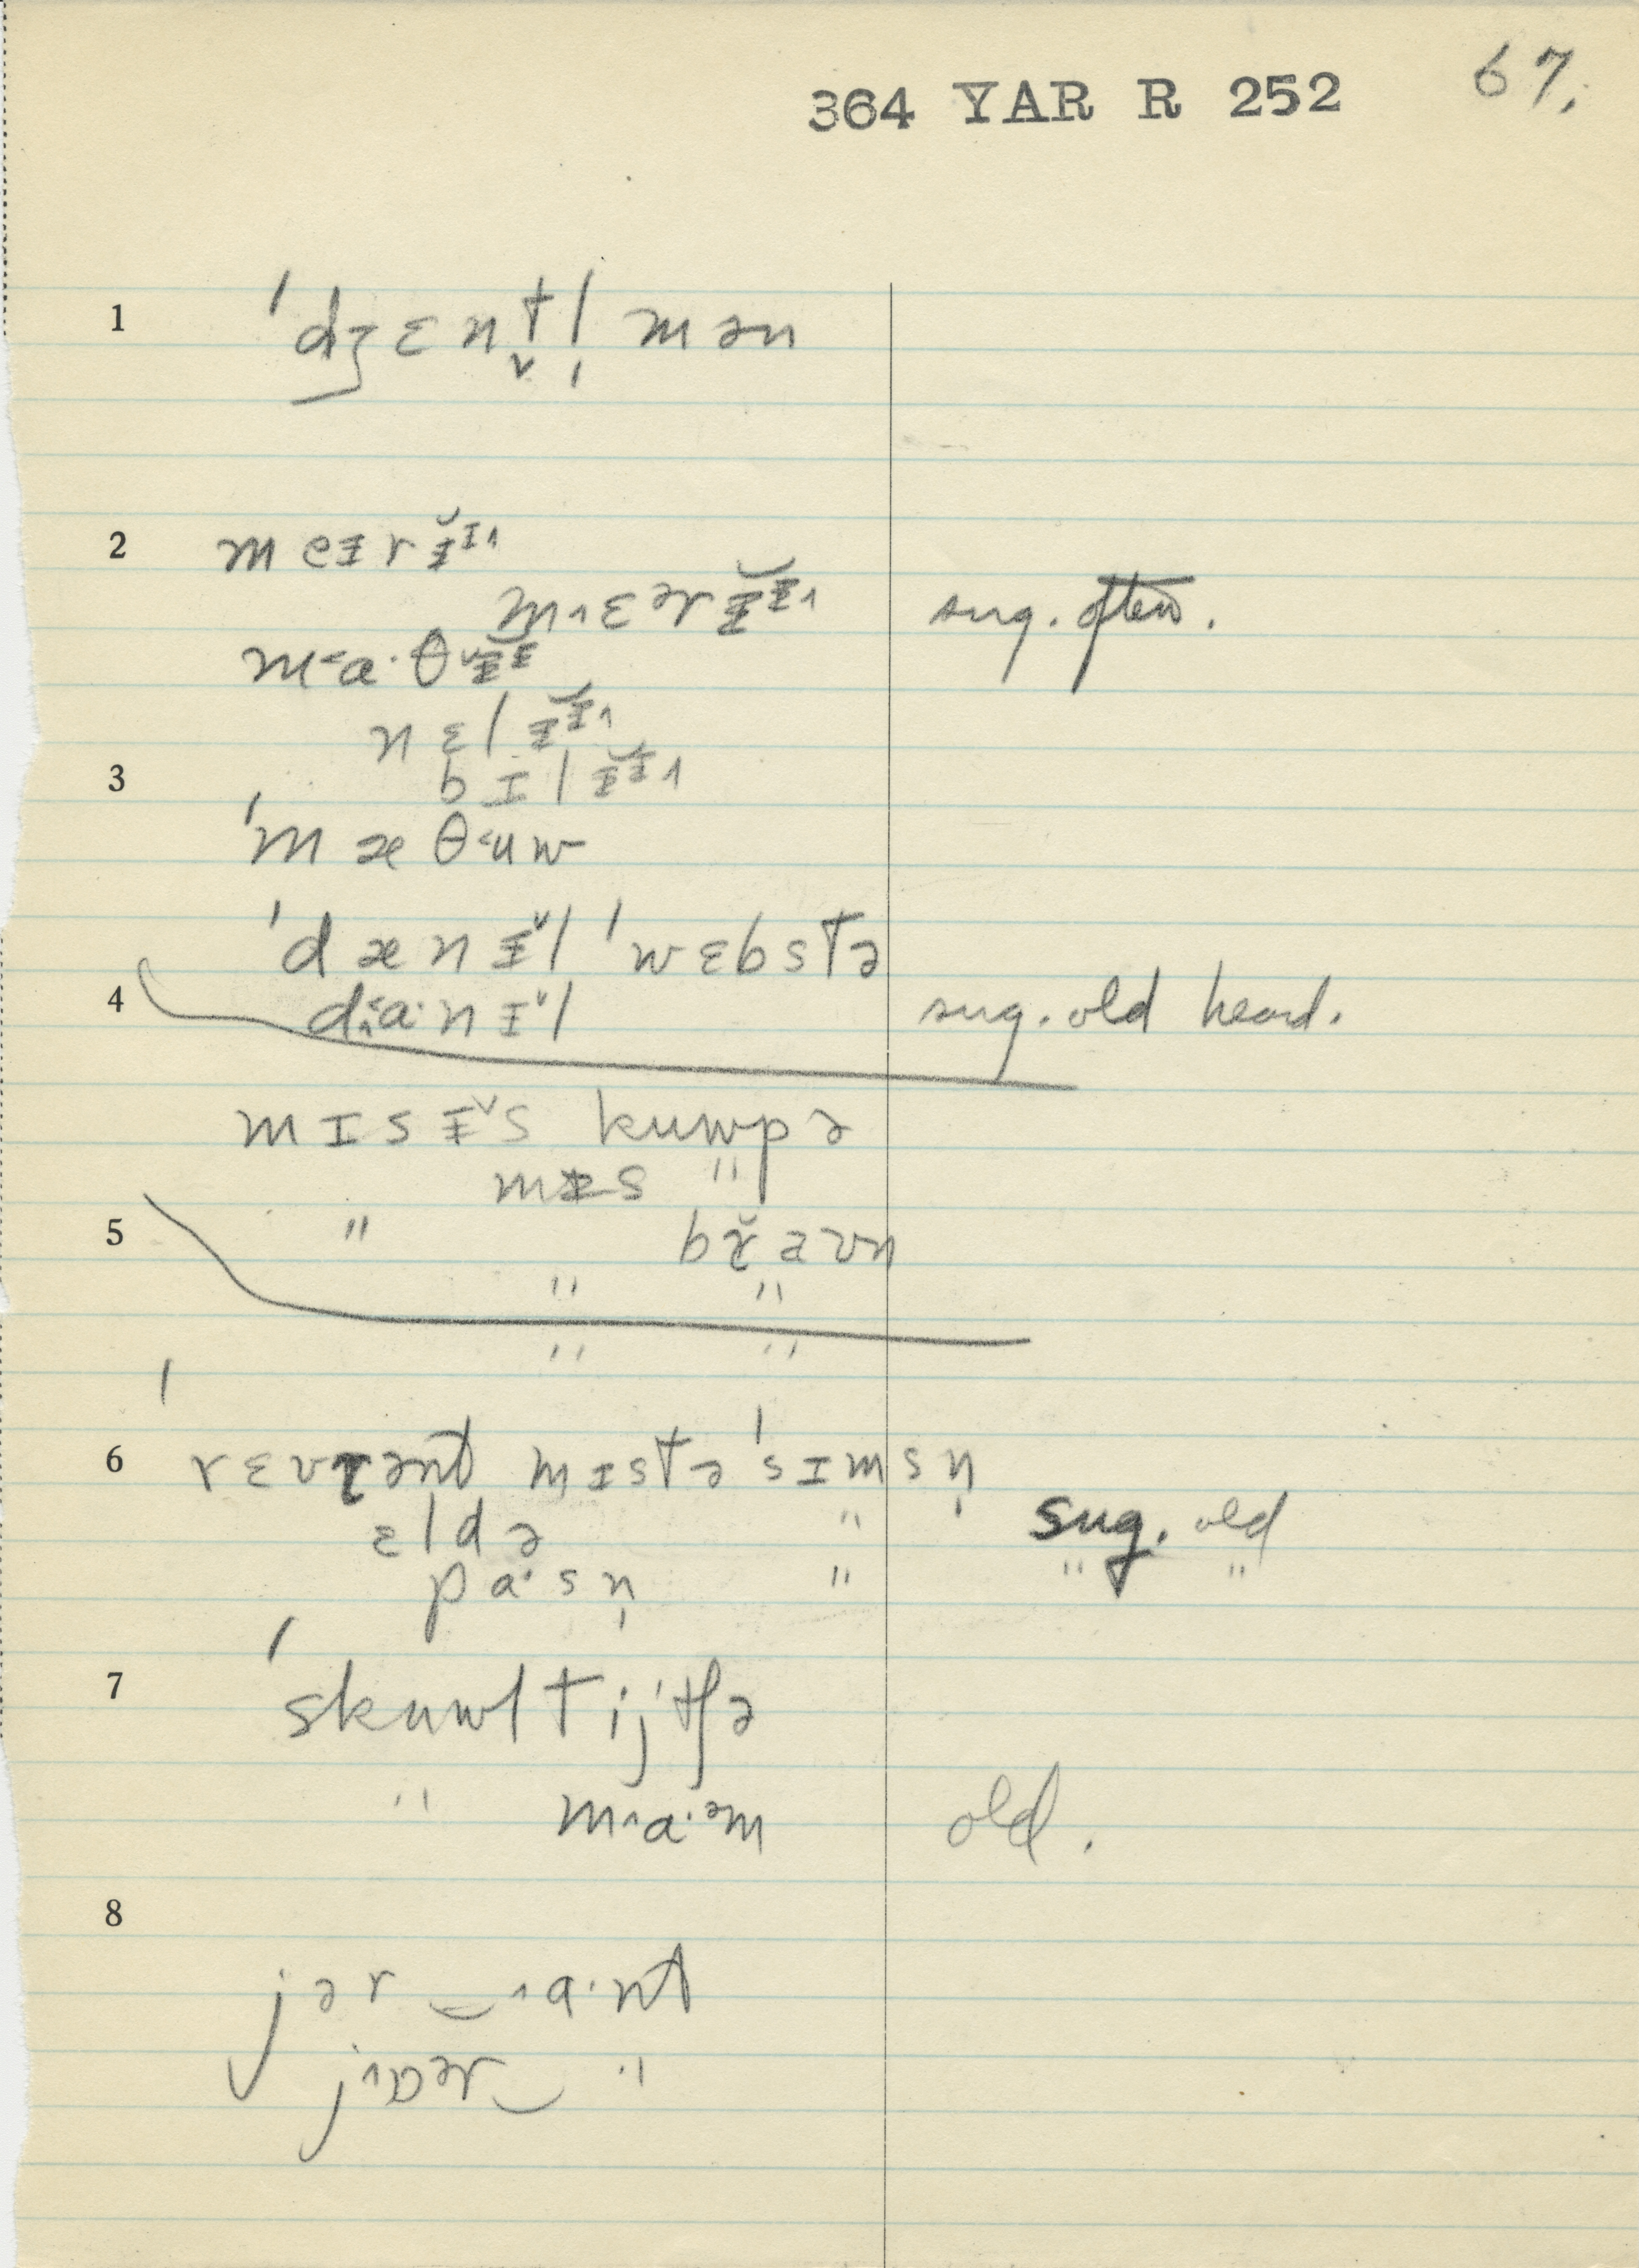 364 YAR R 252 67.
1 ˈdʒɛnt̬l̩mən
2 meɨrɨ̆ᶦ˄
m˄ɛᵊrɨ̆ᶤ˄ sug. often.
m˂a·θ˅ɨ̆ᶤ
nɛlɨ̆ᶤ˄
3 bɪlɨ̆ᶤ˄
ˈmæθ˂uw
ˈdænɨ˅l ˈwɛbstə
4 d˄a·nɨ˅l sug. old heard.
mɪsɨ˅s kuwpə
mɨs "
5 " br̆aʊn
" "
" "
6 ˈrɛvrənt mɪstə ˈsɪmsn̩
ɛldə " sug. old
pa·sn̩ " " "
7 ˈskuwltijtʃə
" m˄a·ᵊm old.
8
jər‿˄a·nt
j˄ɒᵊr‿ "